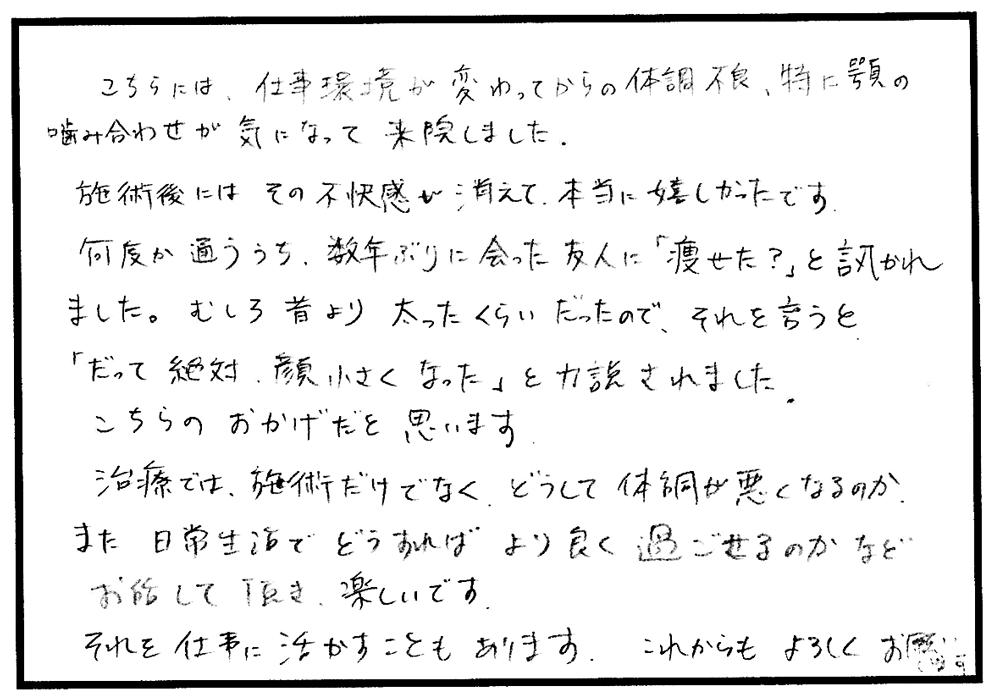 こちらには、仕事環境が変わってからの体調不良、特に顎の
噛み合わせが気になって来院しました.
施術後にはその不快感が消えて、本当に嬉しかったです.
何度か通ううち、数年ぶりに会った友人に「痩せた?」と訊かれ
ました。むしろ昔より太ったくらいだったので、それを言うと
「だって絶対、顔小さくなった」と力説されました.
こちらのおかげだと思います.
治療では、施術だけでなく、どうして体調が悪くなるのか、
また日常生活でどうすればより良く過ごせるのかなど
お話して頂き、楽しいです.
それを仕事に活かすこともあります. これからもよろしくお願い